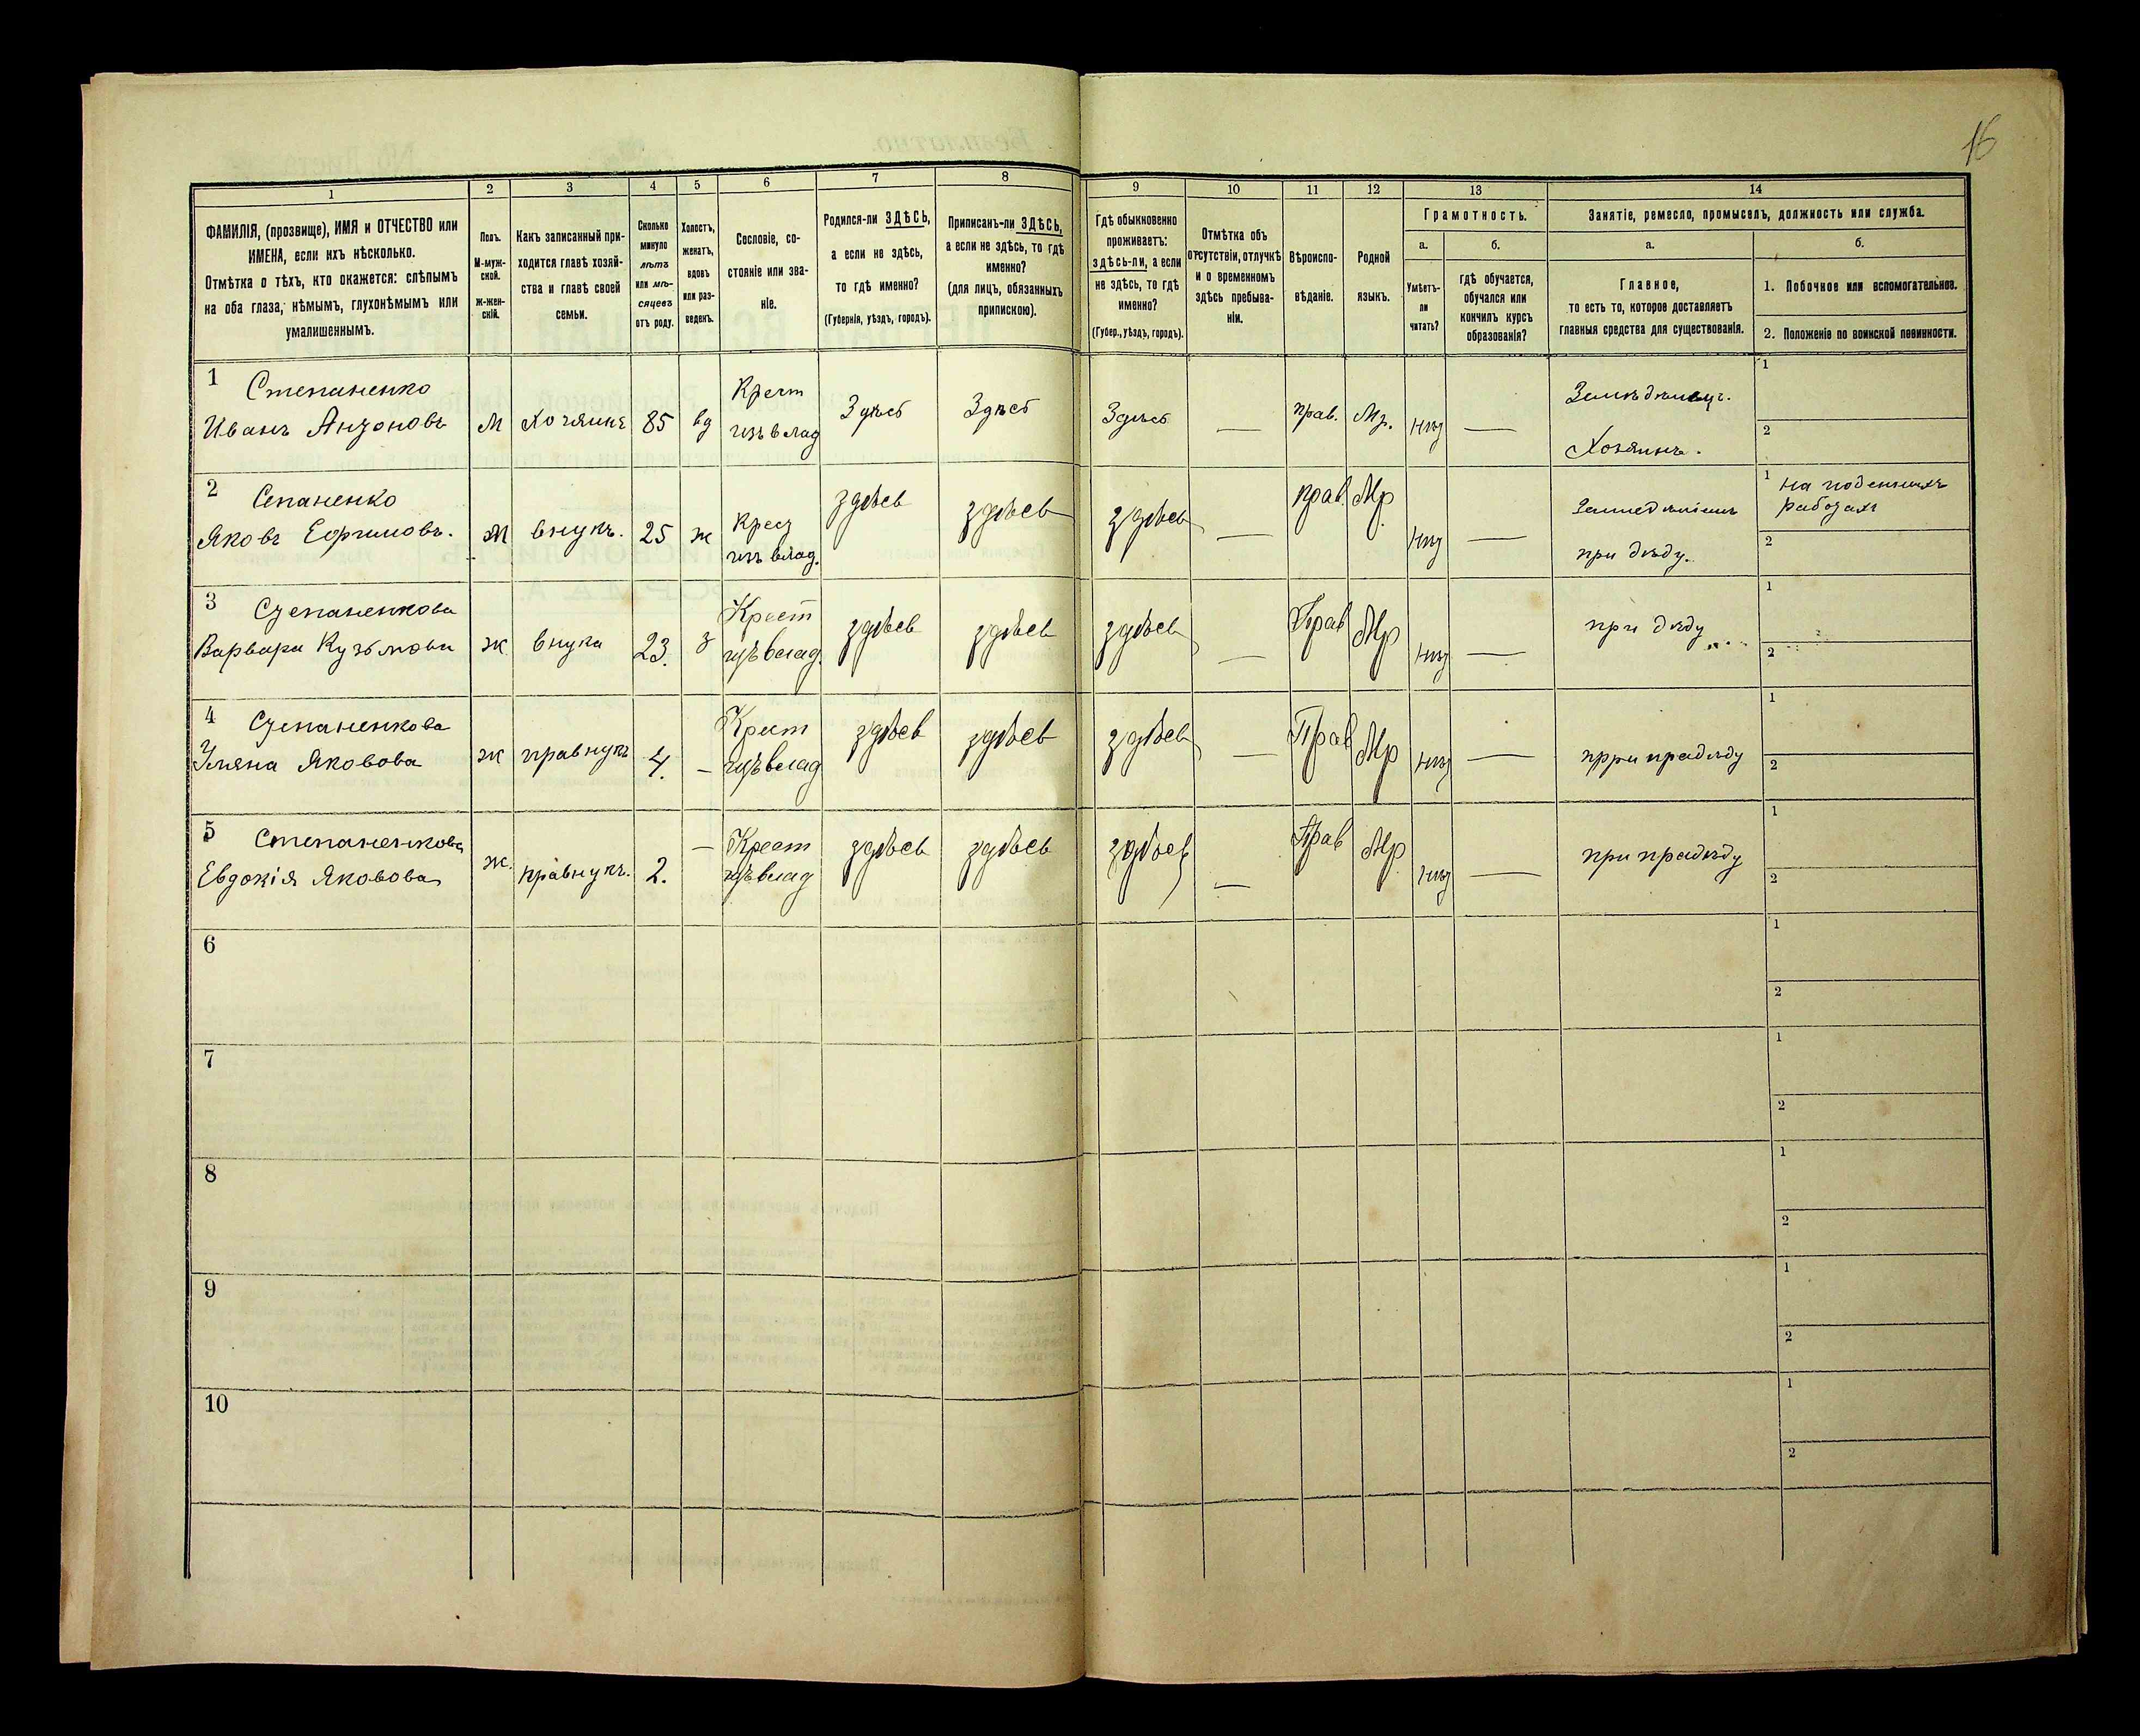 16
1
2
3
4
5
6
7
8
9
10
11
12
13
14
ФАМИЛІЯ, (прозвище), ИМЯ и ОТЧЕСТВО или
ИМЕНА, если ихъ нѣсколько.
Отмѣтка о тѣхъ, кто окажется: слѣпымъ
на оба глаза, нѣмымъ, глухонѣмымъ или
умалишеннымъ.
Полъ.
М-муж-
ской.
ж-жен-
скій.
Какъ записанный при-
ходится главѣ хозяй-
ства и главѣ своей
семьи.
Сколько
минуло
лѣтъ
или мѣ-
сяцевъ
отъ роду.
Холостъ,
женатъ,
вдовъ
или раз-
веденъ.
Сословіе, со-
стояніе или зва-
ніе.
Родился-ли ЗДѢСЬ,
а если не здѣсь,
то гдѣ именно?
(Губернія, уѣздъ, городъ).
Приписанъ-ли ЗДѢСЬ,
а если не здѣсь, то гдѣ
именно?
(для лицъ, обязанныхъ
припискою).
Гдѣ обыкновенно
проживаетъ:
здѣсь-ли, а если
не здѣсь, то гдѣ
именно?
(Губер., уѣздъ, городъ).
Отмѣтка объ
отсутствіи, отлучкѣ
и о временномъ
здѣсь пребыва-
ніи.
Вѣроиспо-
вѣданіе.
Родной
языкъ.
Грамотность.
а.
б.
Умѣетъ-
ли
читать?
гдѣ обучается,
обучался или
кончилъ курсъ
образованія?
Занятіе, ремесло, промыселъ, должность или служба.
а.
б.
Главное,
то есть то, которое доставляетъ
главныя средства для существованія.
1. Побочное или вспомогательное.
2. Положеніе по воинской повинности.
1 Степаненко
Иванъ Антоновъ
М
Хозяинъ
85
вд
Крест
изъ влад
Здѣсь
Здѣсь
Здѣсь
—
прав.
Мр.
нѣт
—
Хозяинъ.
1
2
2 Сепаненко
Яковъ Ефимовъ.
М
внукъ.
25
ж
Крест
изъ влад.
здѣсь
здѣсь
здѣсь
—
прав
Мр
нѣт
—
при дѣду.
1 на поденныхъ
работахъ
2
3 Степаненкова
Варвара Кузьмова
ж
внука
23.
з
Крест
изъ влад.
здѣсь
здѣсь
здѣсь
—
Прав
Мр
нѣт
—
при дѣду
1
2
4 Степаненкова
Уляна Яковова
ж
правнукъ
4.
—
Крест
изъ влад
здѣсь
здѣсь
здѣсь
—
Прав
Мр
нѣт
—
прри прадѣду
1
2
5 Степаненкова
Евдокія Яковова
ж.
правнукъ.
2.
—
Крест
изъ влад
здѣсь
здѣсь
здѣсь
—
Прав
Мр
нѣт
—
при прадѣду
1
2
6
1
2
7
1
2
8
1
2
9
1
2
10
1
2